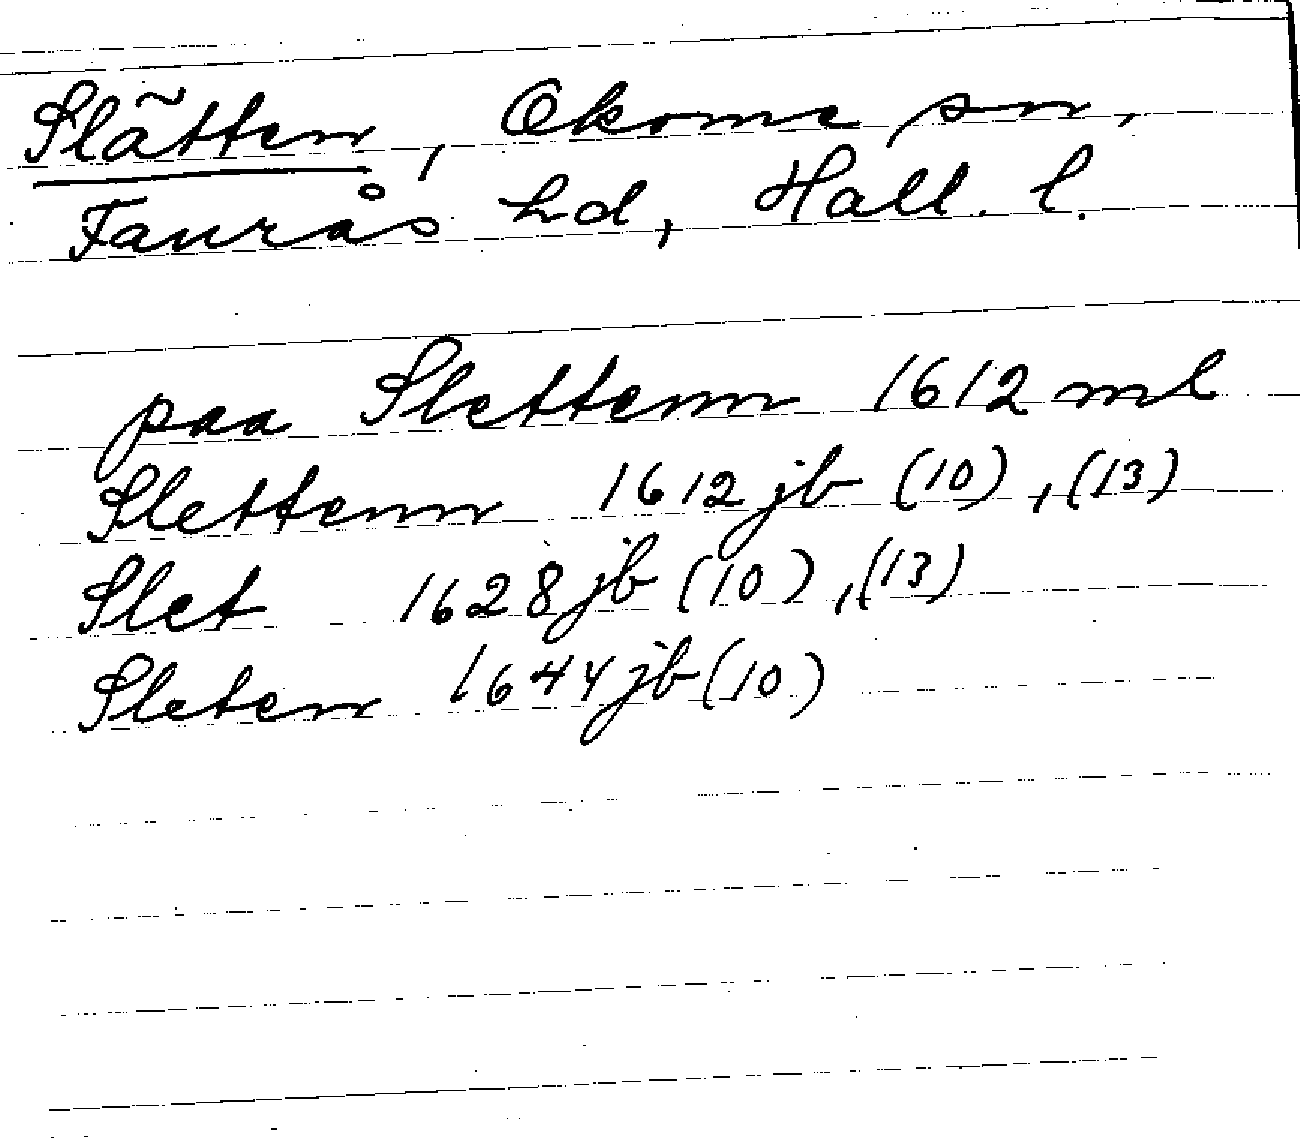 Slätten, Okome sn,
Faurås hd, Hall. l.
paa Slettenn 1612 ml
Slettenn 1612 jb (10), (13)
Slet 1628 jb (10), (13)
Sleten 1644 jb (10)